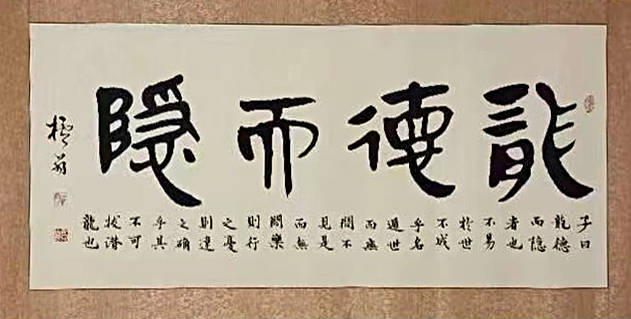 龍德而隱
子曰
龍德
而隐
者也
不易
於世
不成
乎名
遁世
而無
悶不
見是
而無
悶樂
則行
之憂
則違
之确
乎其
不可
拔潜
龍也